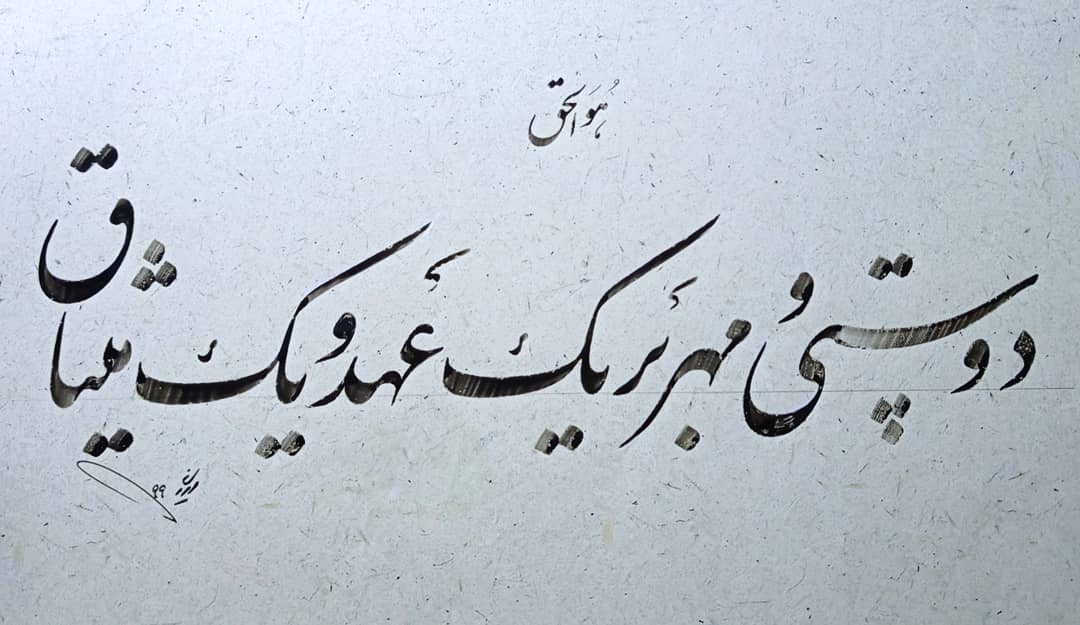 هُوَالحق
دوستیُ مهر بَر یک عَهد و یک میثاق
۹۹